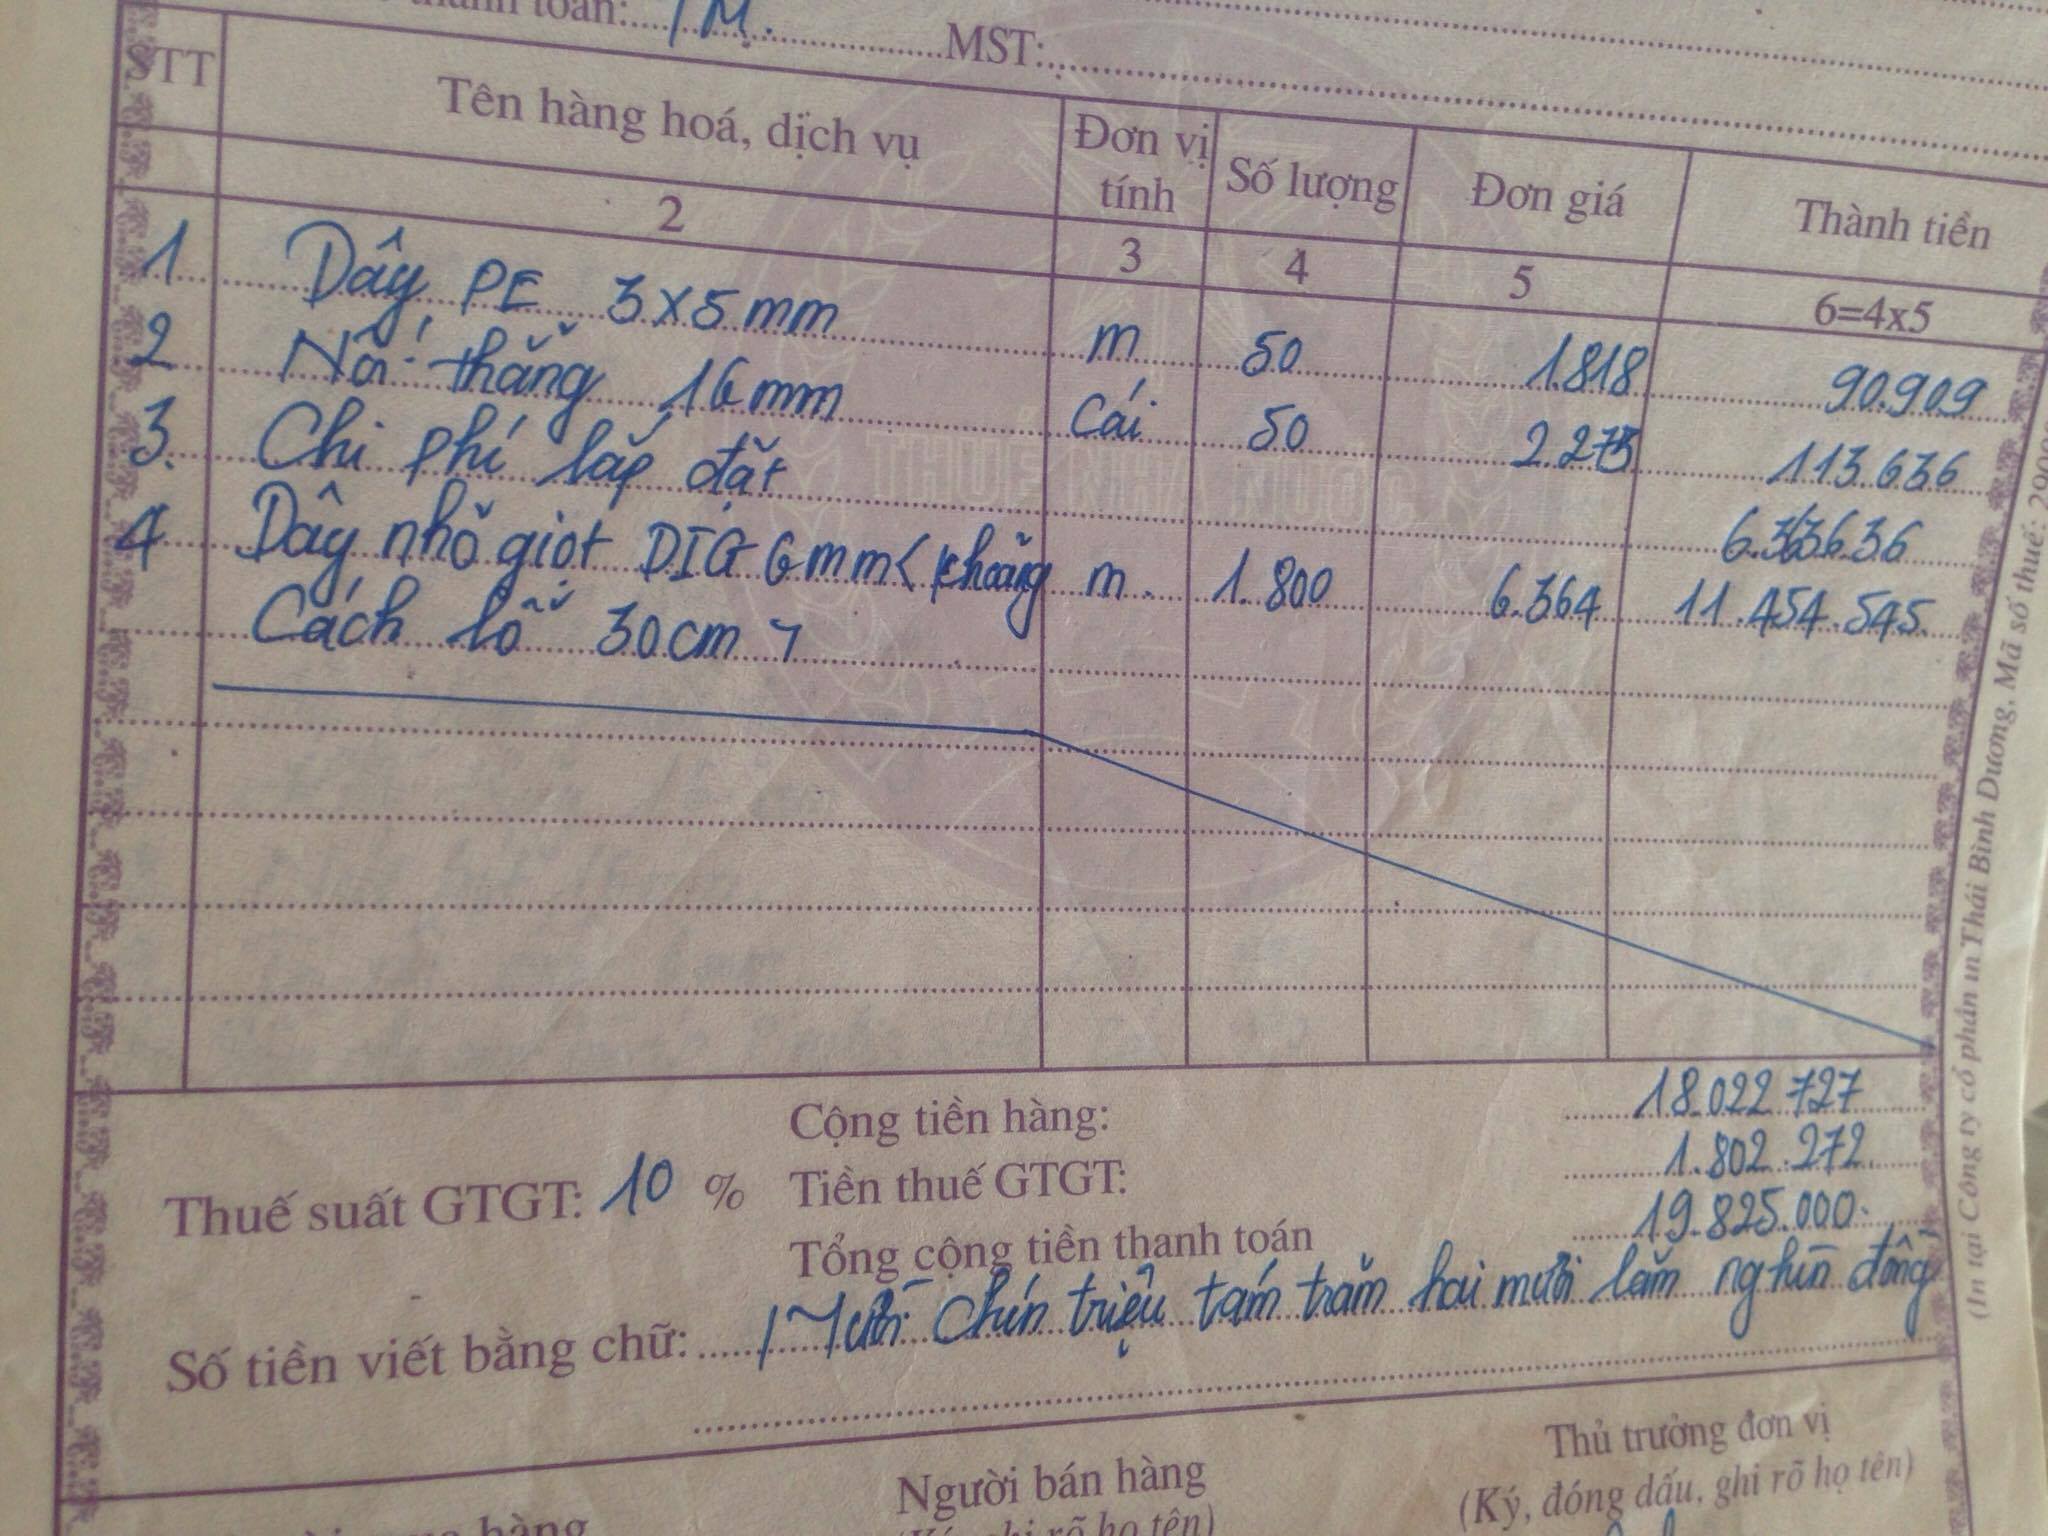 thanh toán: TM. MST:
STT Tên hàng hoá, dịch vụ Đơn vị tính Số lượng Đơn giá Thành tiền
2 3 4 5 6=4x5
1 Dây PE 3x5mm m 50 1.818 90.909
2 Nối thẳng 16mm Cái 50 2.273 113.636
3. Chi phí lắp đặt 6.363636
4 Dây nhỏ giọt DIG 6mm < khoảng m. 1.800 6.364 11.454.545.
Cách lỗ 30cm >
THUẾ NHÀ NƯỚC
Cộng tiền hàng: 18.022.727
Thuế suất GTGT: 10 % Tiền thuế GTGT: 1.802.272.
Tổng cộng tiền thanh toán 19.825.000.
Số tiền viết bằng chữ: Mười chín triệu tám trăm hai mười lăm nghìn đồng
Người bán hàng Thủ trưởng đơn vị
(Ký, ghi rõ họ tên) (Ký, đóng dấu, ghi rõ họ tên)
(In tại Công ty cổ phần in Thái Bình Dương, Mã số thuế: 2900